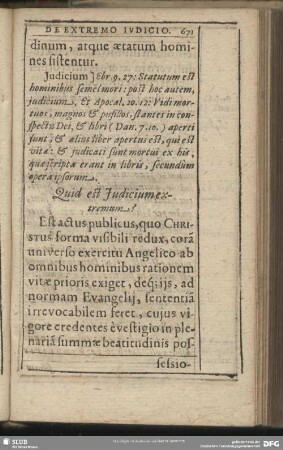 DE EXTREMO IVDICIO. 671
dinum, atque ætatum homi-
nes sistentur.
Judicium] Ebr. 9. 27: Statutum est
hominibus semel mori: post hoc autem,
judicium, Et Apocal. 20. 12: Vidi mor-
tuos, magnos & pusillos, stantes in con-
spectu Dei, & libri (Dan. 7. 10.) aperti
sunt, & alius liber apertus est, qui est
vitæ: & judicati sunt mortui ex his,
quæ scripta erant in libris, secundùm
opera ipsorum.
Quid est Judicium ex-
tremum?
Est actus publicus, quo CHRI-
STUS forma visibili redux, corā
universo exercitu Angelico ab
omnibus hominibus rationem
vitæ prioris exiget, deq; ijs, ad
normam Evangelij, sententiā
irrevocabilem feret, cujus vi-
gore credentes è vestigio in ple-
nariā summæ beatitudinis pos-
sessio-
SLUB
DFG